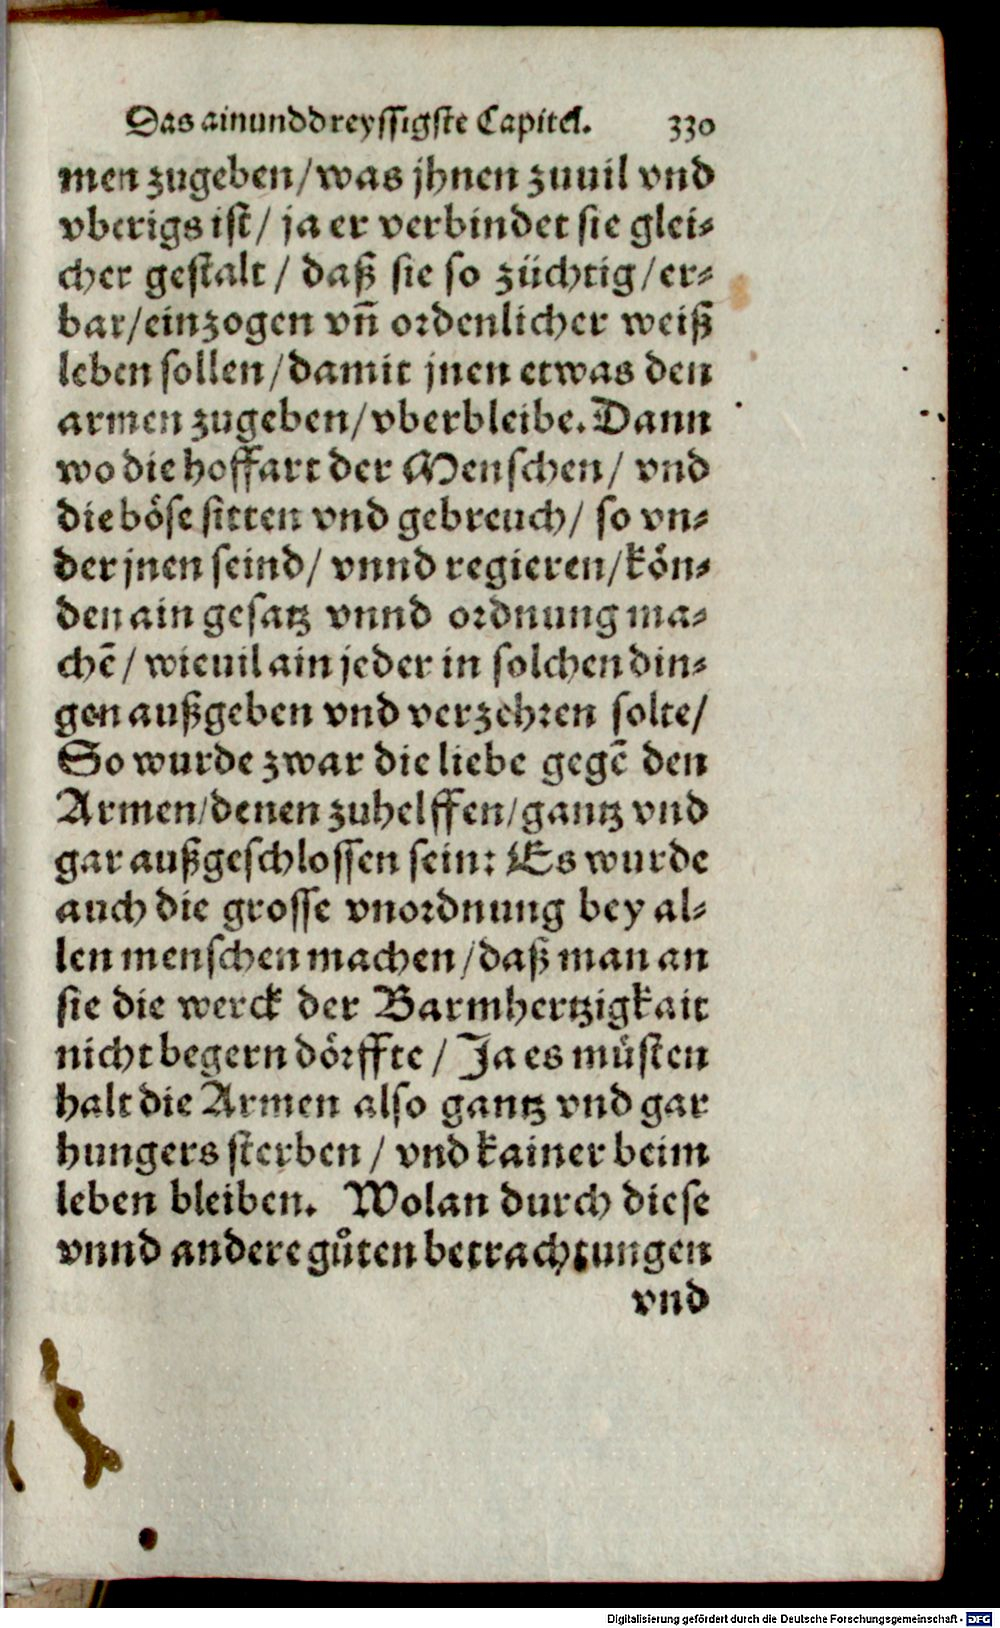 Das ainunddreyssigste Capitel. 330
men zugeben/was jhnen zuuil vnd
vberigs ist/ ja er verbindet sie glei-
cher gestalt / daß sie so züchtig/er-
bar/einzogen vñ ordenlicher weiß
leben sollen/damit jnen etwas den
armen zugeben/vberbleibe. Dann
wo die hoffart der Menschen/ vnd
die böse sitten vnd gebreuch/ so vn-
der jnen seind/ vnnd regieren/kön-
den ain gesatz vnnd ordnung ma-
chē/ wieuil ain jeder in solchen din-
gen außgeben vnd verzehren solte/
So wurde zwar die liebe gegē den
Armen/denen zuhelffen/gantz vnd
gar außgeschlossen sein: Es wurde
auch die grosse vnordnung bey al-
len menschen machen/daß man an
sie die werck der Barmhertzigkait
nicht begern dörffte / Ja es müsten
halt die Armen also gantz vnd gar
hungers sterben / vnd kainer beim
leben bleiben. Wolan durch diese
vnnd andere gůten betrachtungen
vnd
Digitalisierung gefördert durch die Deutsche Forschungsgemeinschaft - DFG